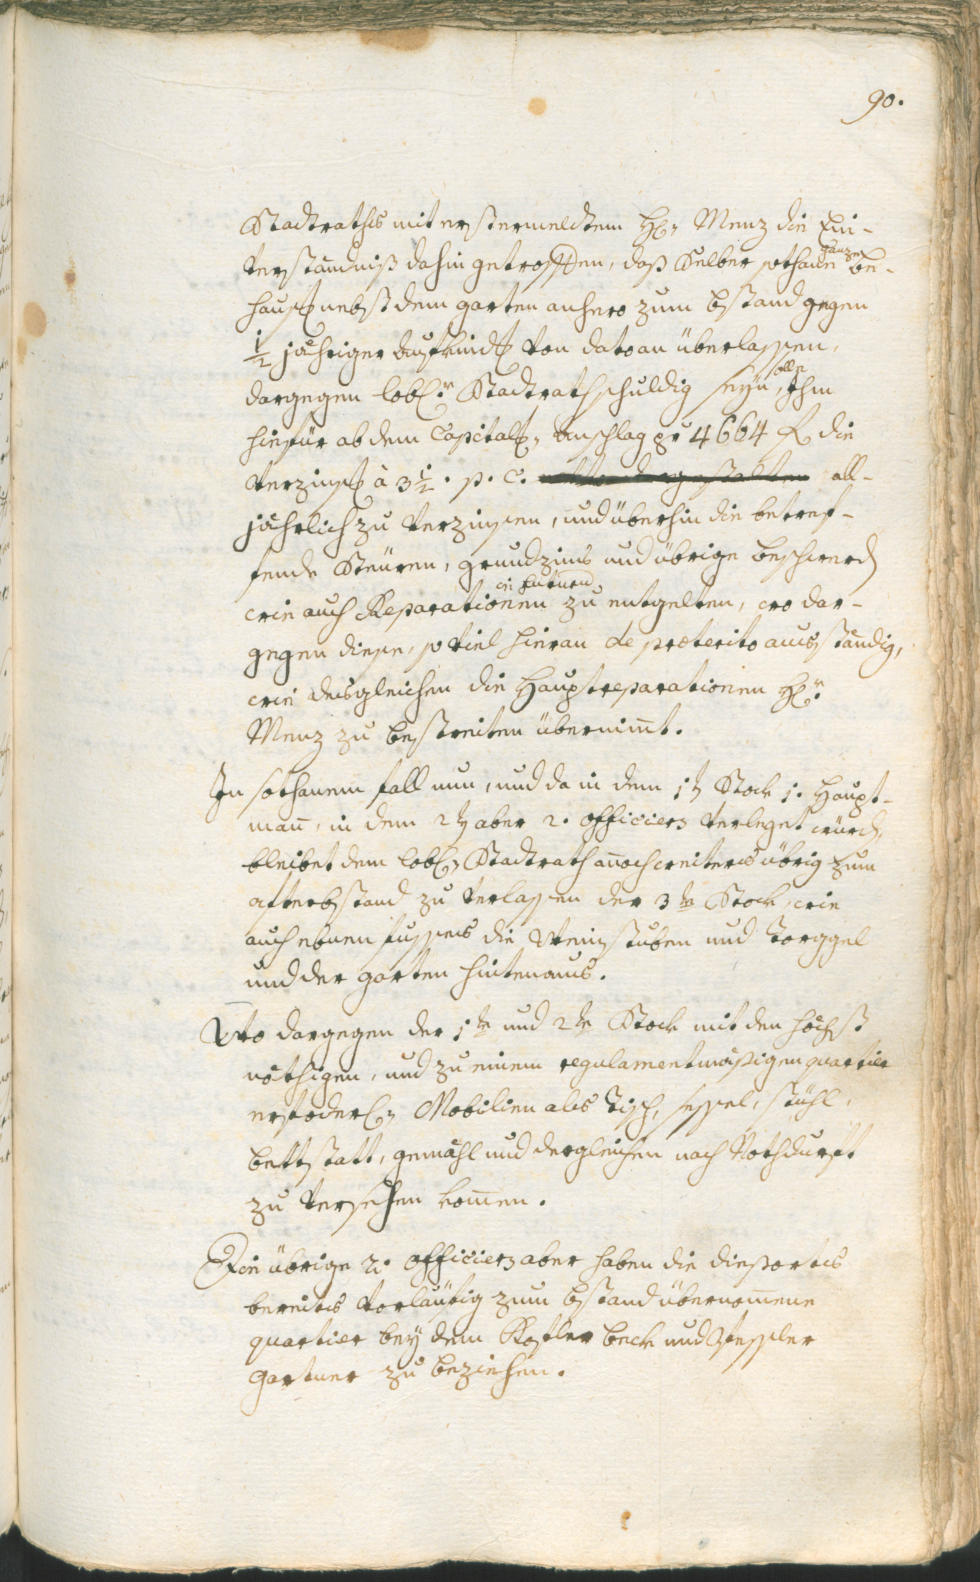 90.
Stadtraths mit erstermeldtem H: Menz die Ein-
verständniß dahin getroffen, daß Selber sothane ganze Be-
hausg nebst dem garten anhero zum bstand gegen
1/2 jähriger Aufkündg von dato an überlassen,
dargegen lobl:r Stadtrath schuldig seyn solle, Ihm
hiefür ab dem Capitals, Anschlag pr 4664 f die
verzinsg à 3 1/2. p. C. all-
jährlich zu verzinsen, und überhin die betref-
fende Steüren, grundzins und übrige beschwerd
wie auch Reparationen in futurum zu entgelten, wo dar-
gegen diese, so viel hieran de praeterito ausständig,
wie desgleichen die Hauptreparationen H:r
Menz zu bestreiten übernimt.
In sothanem fall nun, und da in dem 1t Stock 1. Haupt-
man, in dem 2t aber 2. officiers verleget würd,
bleibet dem lobl: Stadtrath annoch weiters übrig zum
afterbstand zu verlassen der 3te Stock, wie
auch ebnen fusses die Weinstuben und Torggel
und der garten hintenaus.
Wo dargegen der 1te und 2te Stock mit den höchst
nöthigen, und zu einem regulamentmäßigen quartier
erfoderl: Mobilien als Tisch, sessel, stühl,
bettstatt, gemähl und dergleichen nach Nothdurft
zu versehen kommen.
Die übrige 2. officiers aber haben die diesorts
bereits vorläufig zum bstand übernommene
quartier bey dem Kostler beck und Stessler
gartner zu beziehen.